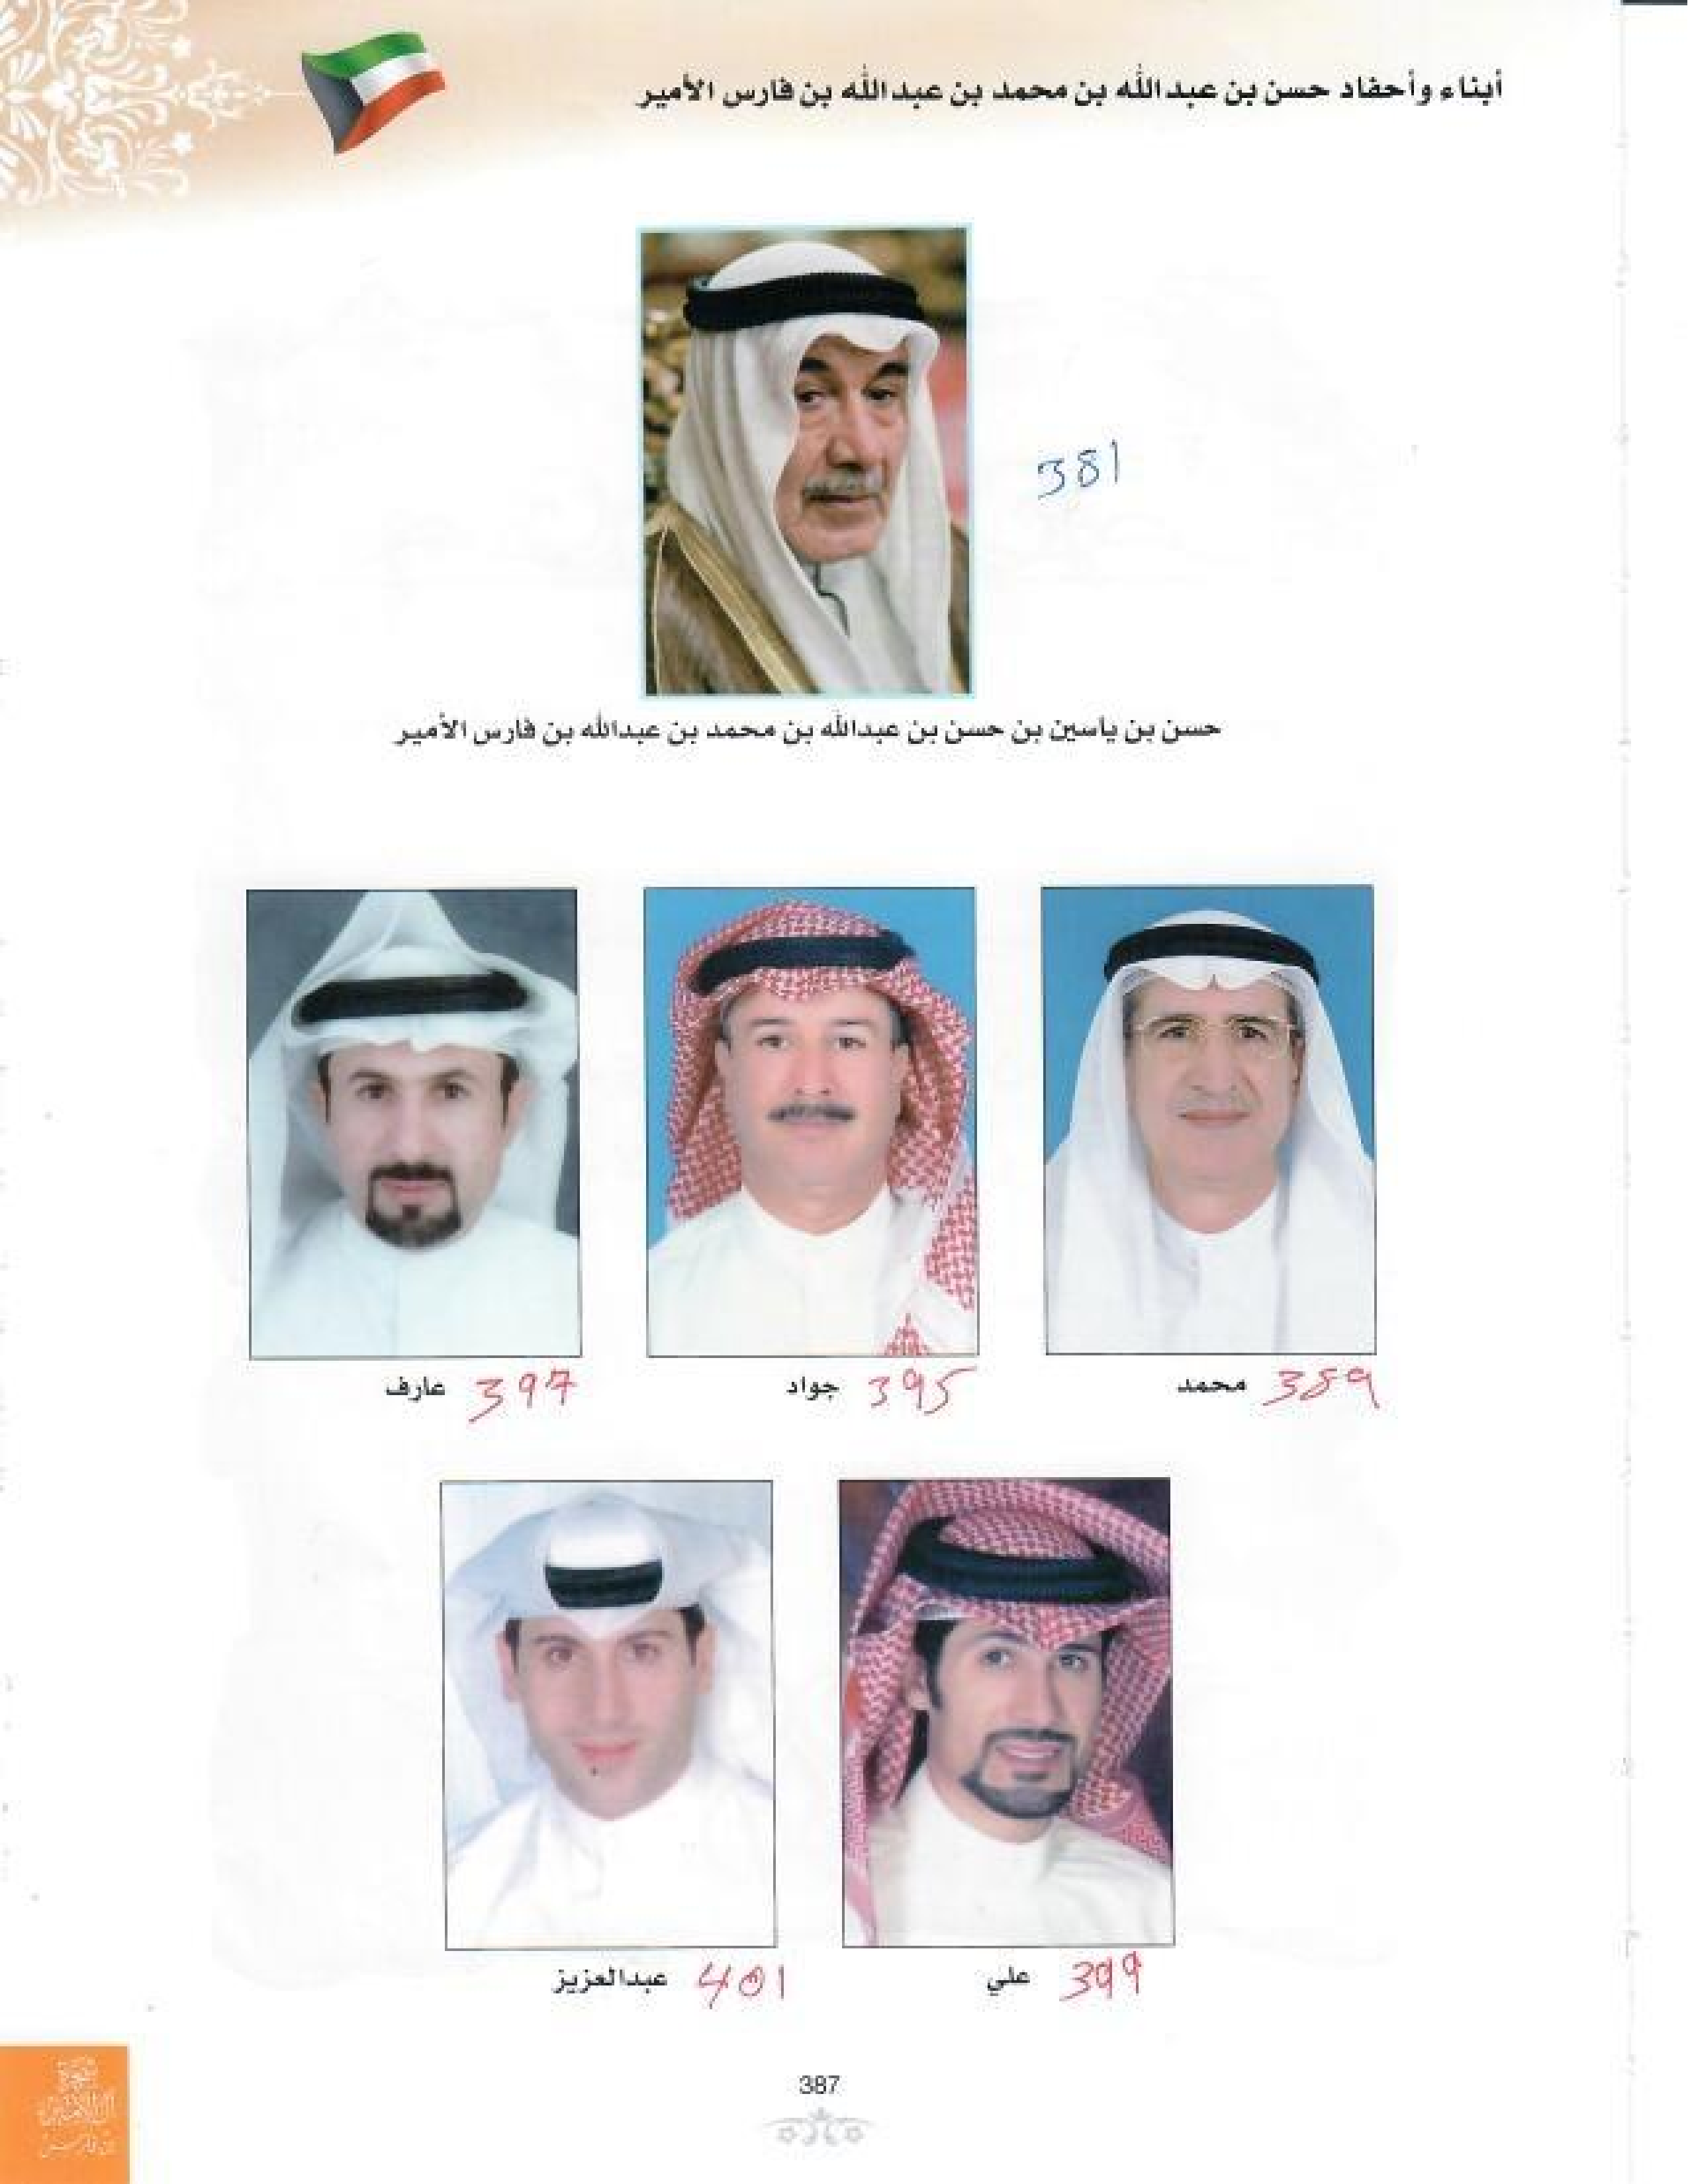 أبناء وأحفاد حسن بن عبد الله بن محمد بن عبد الله بن فارس الأمير
381
حسن بن ياسين بن حسن بن عبدالله بن محمد بن عبدالله بن فارس الأمير
389 محمد
395 جواد
397 عارف
399 علي
401 عبدالعزيز
387